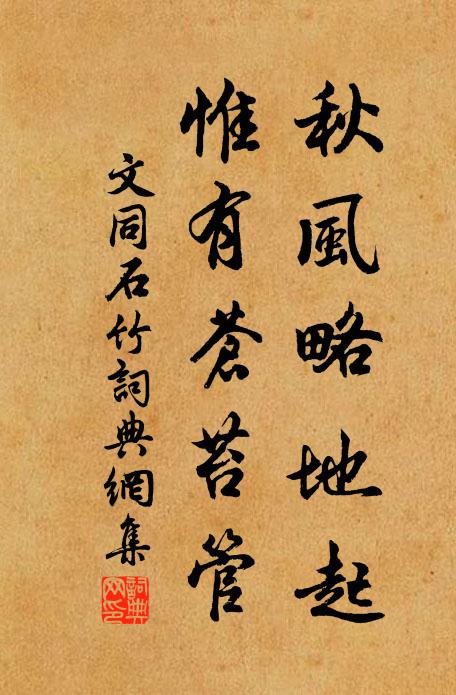 秋風略地起
惟有蒼苔管
文同石竹詞典網集
詞典網印